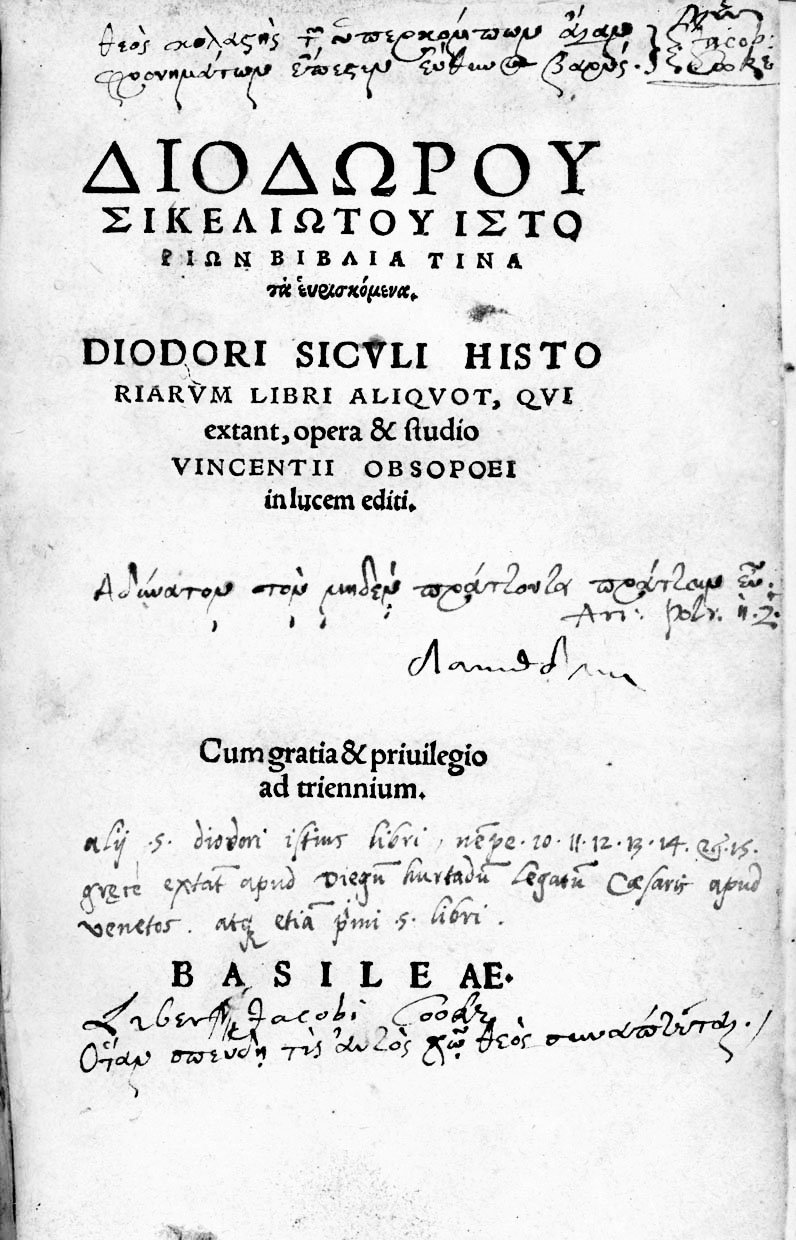 θεὸς κολαϛὴς τῶν ὑπερκόμπων ἄγαν
φρονημάτων ἔπεϛιν εὔθυνος βαρύς.
Jacob:
Cooke
ΔΙΟΔΩΡΟΥ
ΣΙΚΕΛΙΩΤΟΥ ΙΣΤΟ
ΡΙΩΝ ΒΙΒΛΙΑ ΤΙΝΑ
τὰ ἑυρισκόμενα.
DIODORI SICVLI HISTO
RIARVM LIBRI ALIQVOT, QVI
extant, opera & ſtudio
VINCENTII OBSOPOEI
in lucem editi.
Αδύνατον τὸν μηδὲν πράττοντα πράττειν εὖ.
Ari:
Cum gratia & priuilegio
ad triennium.
alij .5. diodori iſtius libri, nẽpe .10. 11. 12. 13. 14. & .15.
græcè extãt apud diegũ hurtadũ legatũ Cæſaris apud
venetos. atq; etiã pͥmi .5. libri.
BASILEAE.
Liber Jacobi Cooke
Ὅταν σπεύδῃ τὶς ἀυτὸς χὠ θεὸς συνάπτεται.